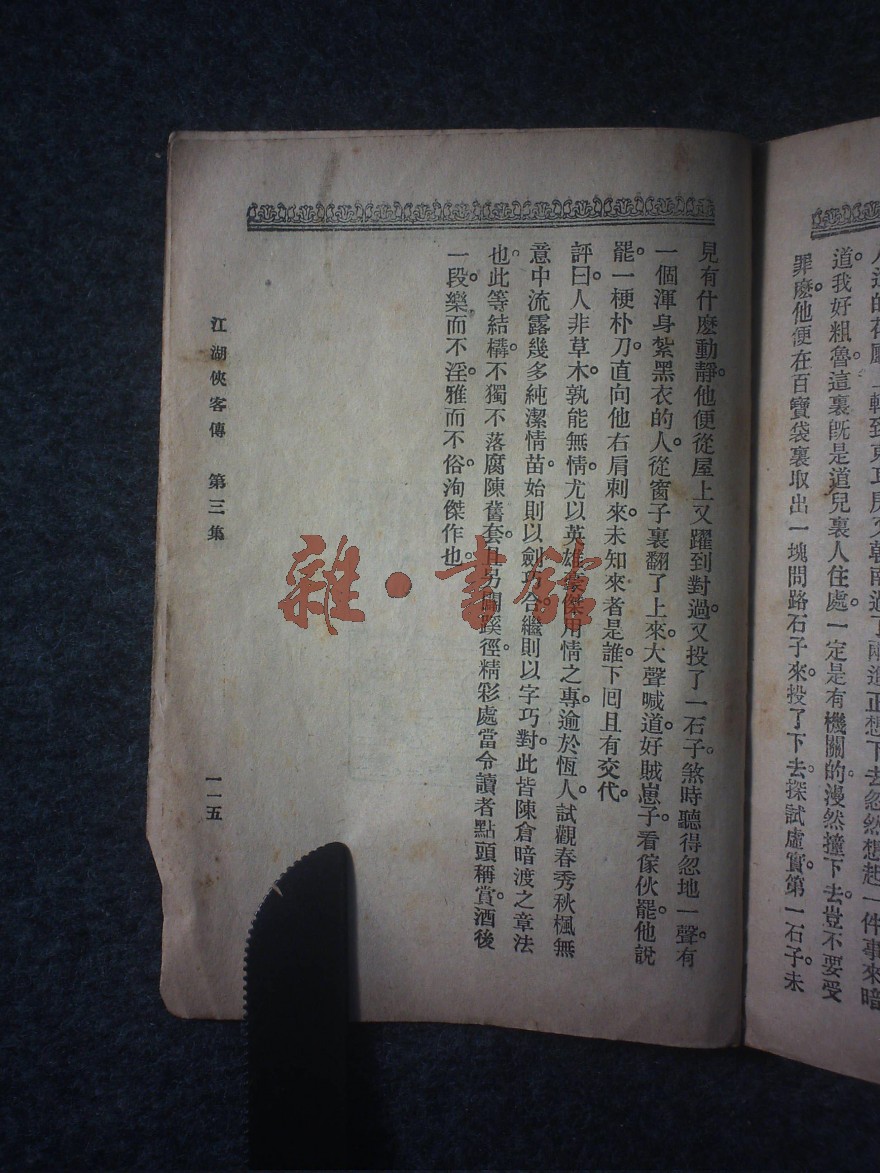 朝南過了兩進正想下去忽然想起一件事來暗
道。我好粗魯這裏既是道兒裏人住處。一定是有機關的。漫然撞下去。豈不要受
罪麽。他便在百寶袋裏取出一塊問路石子來。投了下去。探試虛實。第一石子。未
見有什麽動靜。他便從屋上又躍到對過。又投了一石子。煞時聽得忽地一聲。有
一個渾身紮黑衣的人。從窗子裏翻了上來。大聲喊道。好賊崽子。看傢伙罷。他說
罷。一梗朴刀。直向他右肩刺來。未知來者是誰。下囘且有交代。
評曰。人非草木。孰能無情。尤以英雄豪傑用情之專。逾於恆人。試觀春秀秋楓無
意中流露幾多純潔情苗。始則以劍巧合。繼則以字巧對。此皆陳倉暗渡之章法
也。此等結構。不獨不落腐陳舊套。且另闢蹊徑。精彩處當令讀者點頭稱賞。酒後
一段。樂而不淫。雅而不俗。洵傑作也。
江湖俠客傳 第三集
一一五
雜·書館